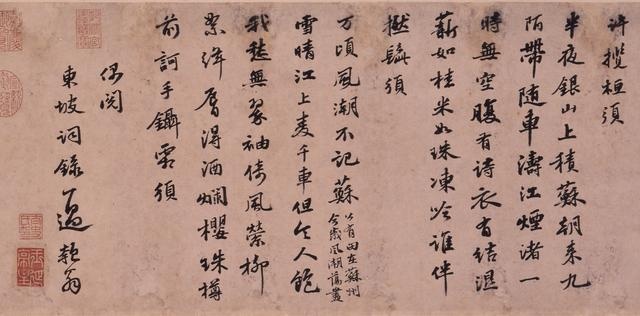 許攬桓須
半夜銀山上積蘇朝来九
陌帶随車濤江煙渚一
時無空腹有詩衣有結濕
薪如桂米如珠凍吟誰伴
撚髭須
万頃風潮不記蘇
公有田在蘇州
今歲風潮蕩盡
雪晴江上麦千車但令人飽
我愁無翠袖倚風縈柳
絮絳唇得酒爛櫻珠樽
前訶手鑷霜須
偶閱
東坡詞錄一過 翁